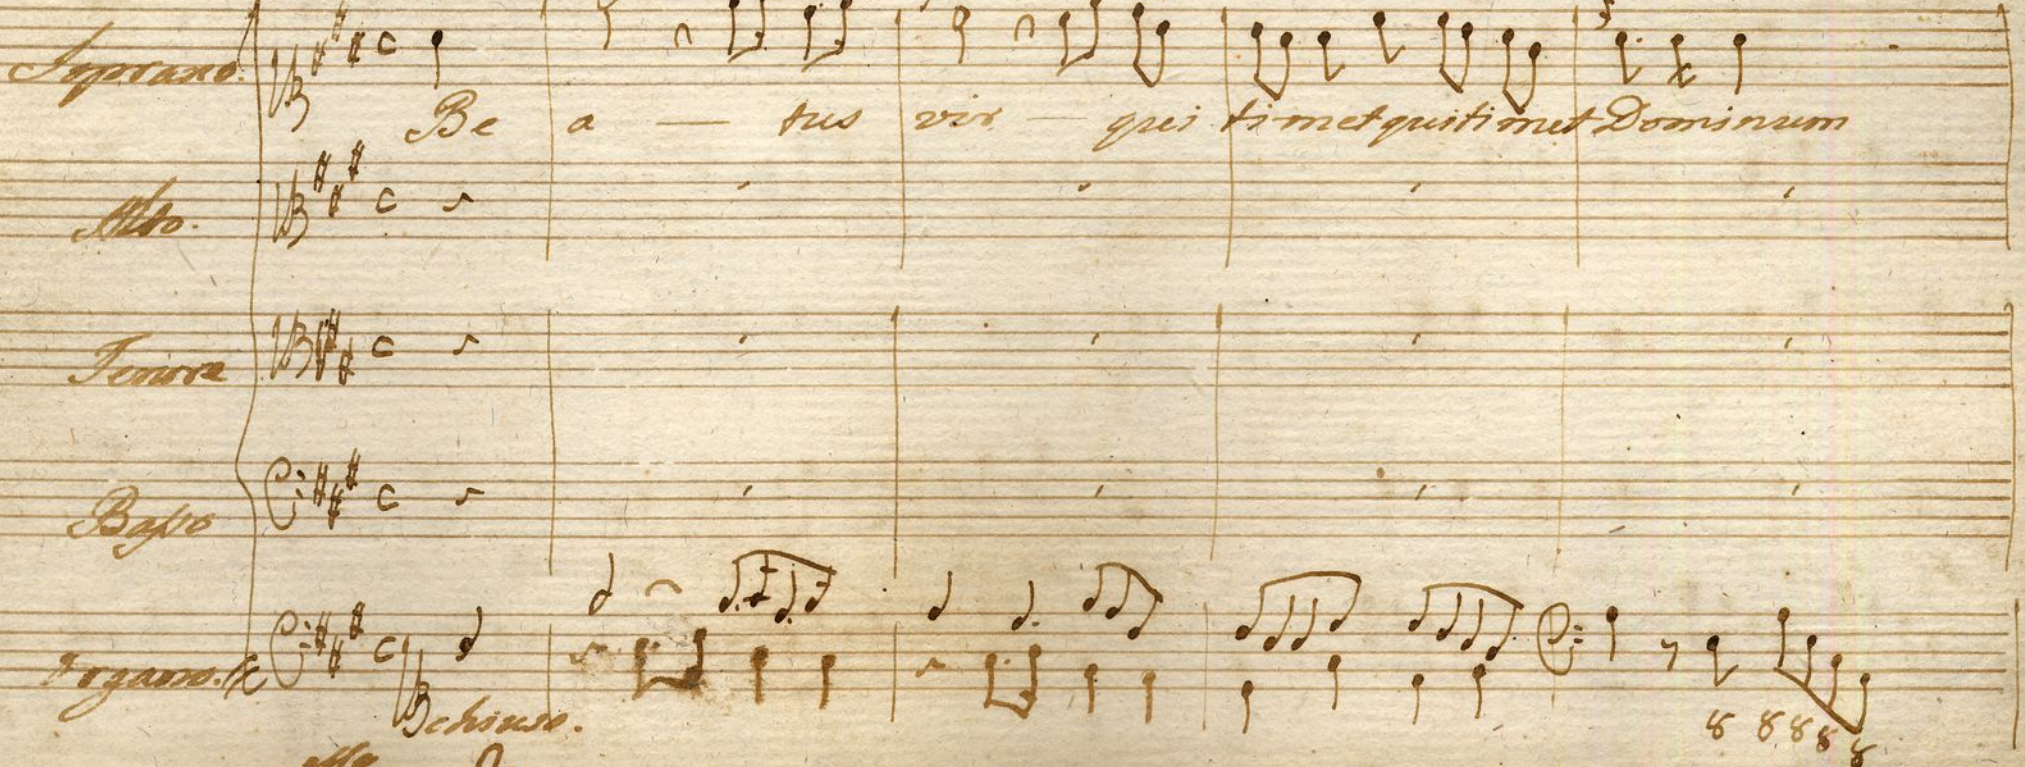 Soprano.
Be a tus vir qui timet qui timet Dominum
Alto.
Tenore
Basso
Organo.
chiuso.
8 8 8 8 8